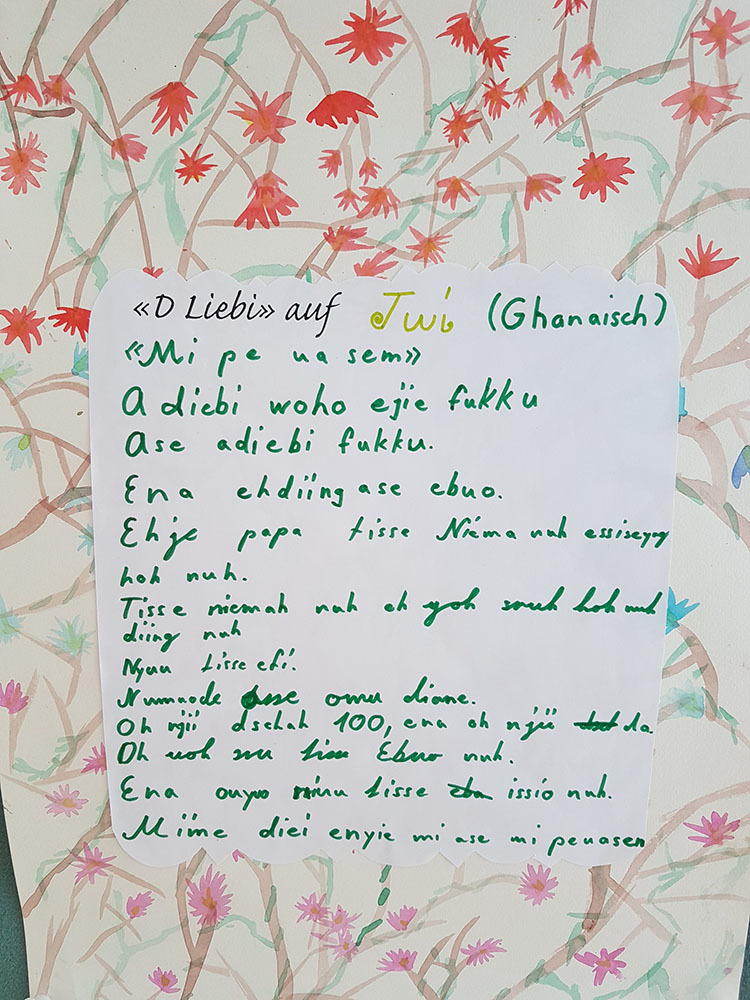 «D Liebi» auf Twi (Ghanaisch)
«Mi pe ua sem»
Adiebi woho ejie fukku
Ase adiebi fukku.
Ena ehdiing ase ebuo.
Ehje papa tisse Niema nuh
hoh nuh.
Tisse niemah nuh eh yoh hoh nuh
diing nuh
Nyuu tisse efi.
Numuode omu diane.
Oh njii dschah 100, ena oh njii da.
Oh uoh su Ebuo nuh.
Ena ouyuo tisse issio nuh.
Miime diei enyie mi ase mi penasen